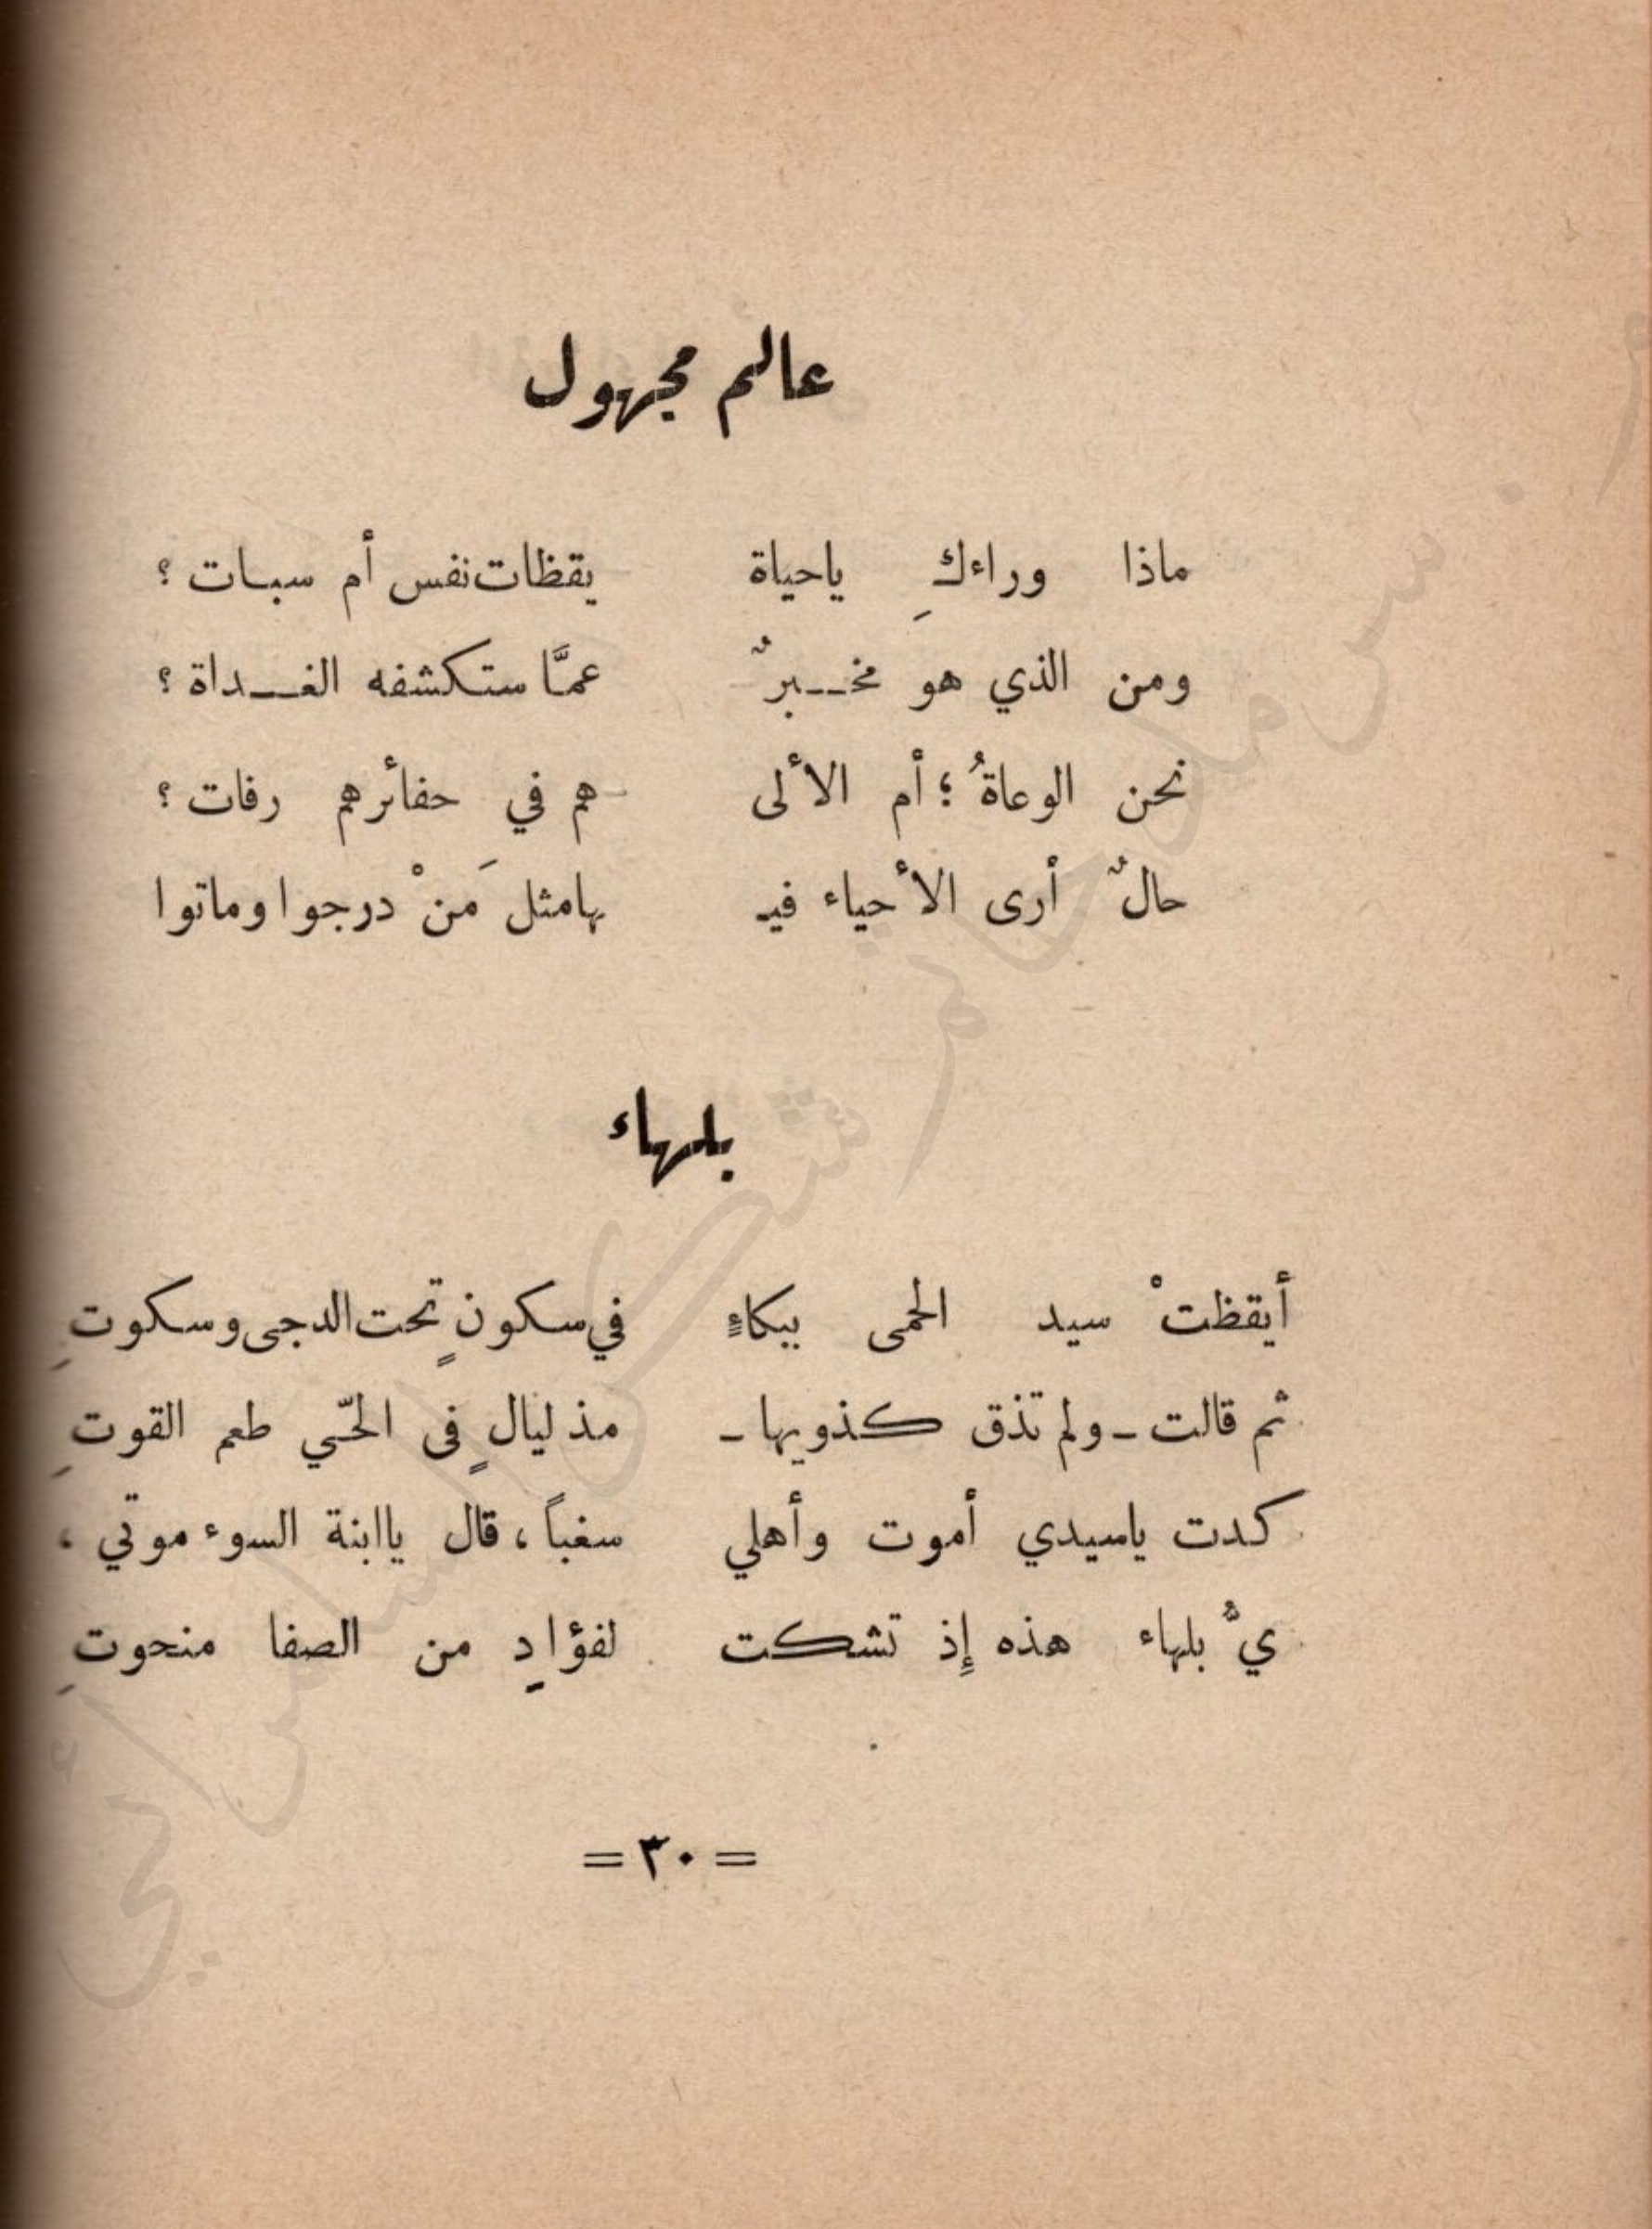 عالم مجهول
ماذا وراءكِ ياحياة يقظات نفس أم سبات ؟
ومن الذي هو مخـــبرٌ عمَّا ستكشفه الغـــداة ؟
نحن الوعاةُ ؛ أم الألى هم في حفائرهم رفات ؟
حالٌ أرى الأحياء فيـ بها مثل مَنْ درجوا وماتوا
بلهاء
أيقظتْ سيد الحمى ببكاءٍ في سكونٍ تحت الدجى وسكوتِ
ثم قالت ـ ولم تذق كذويها ـ مذ ليالٍ فى الحّي طعم القوتِ
كدت ياسيدي أموت وأهلي سغباً ، قال ياابنة السوء موتي ،
يٌّ بلهاء هذه إذ تشكت لفؤادٍ من الصفا منحوتِ
= ٣٠ =